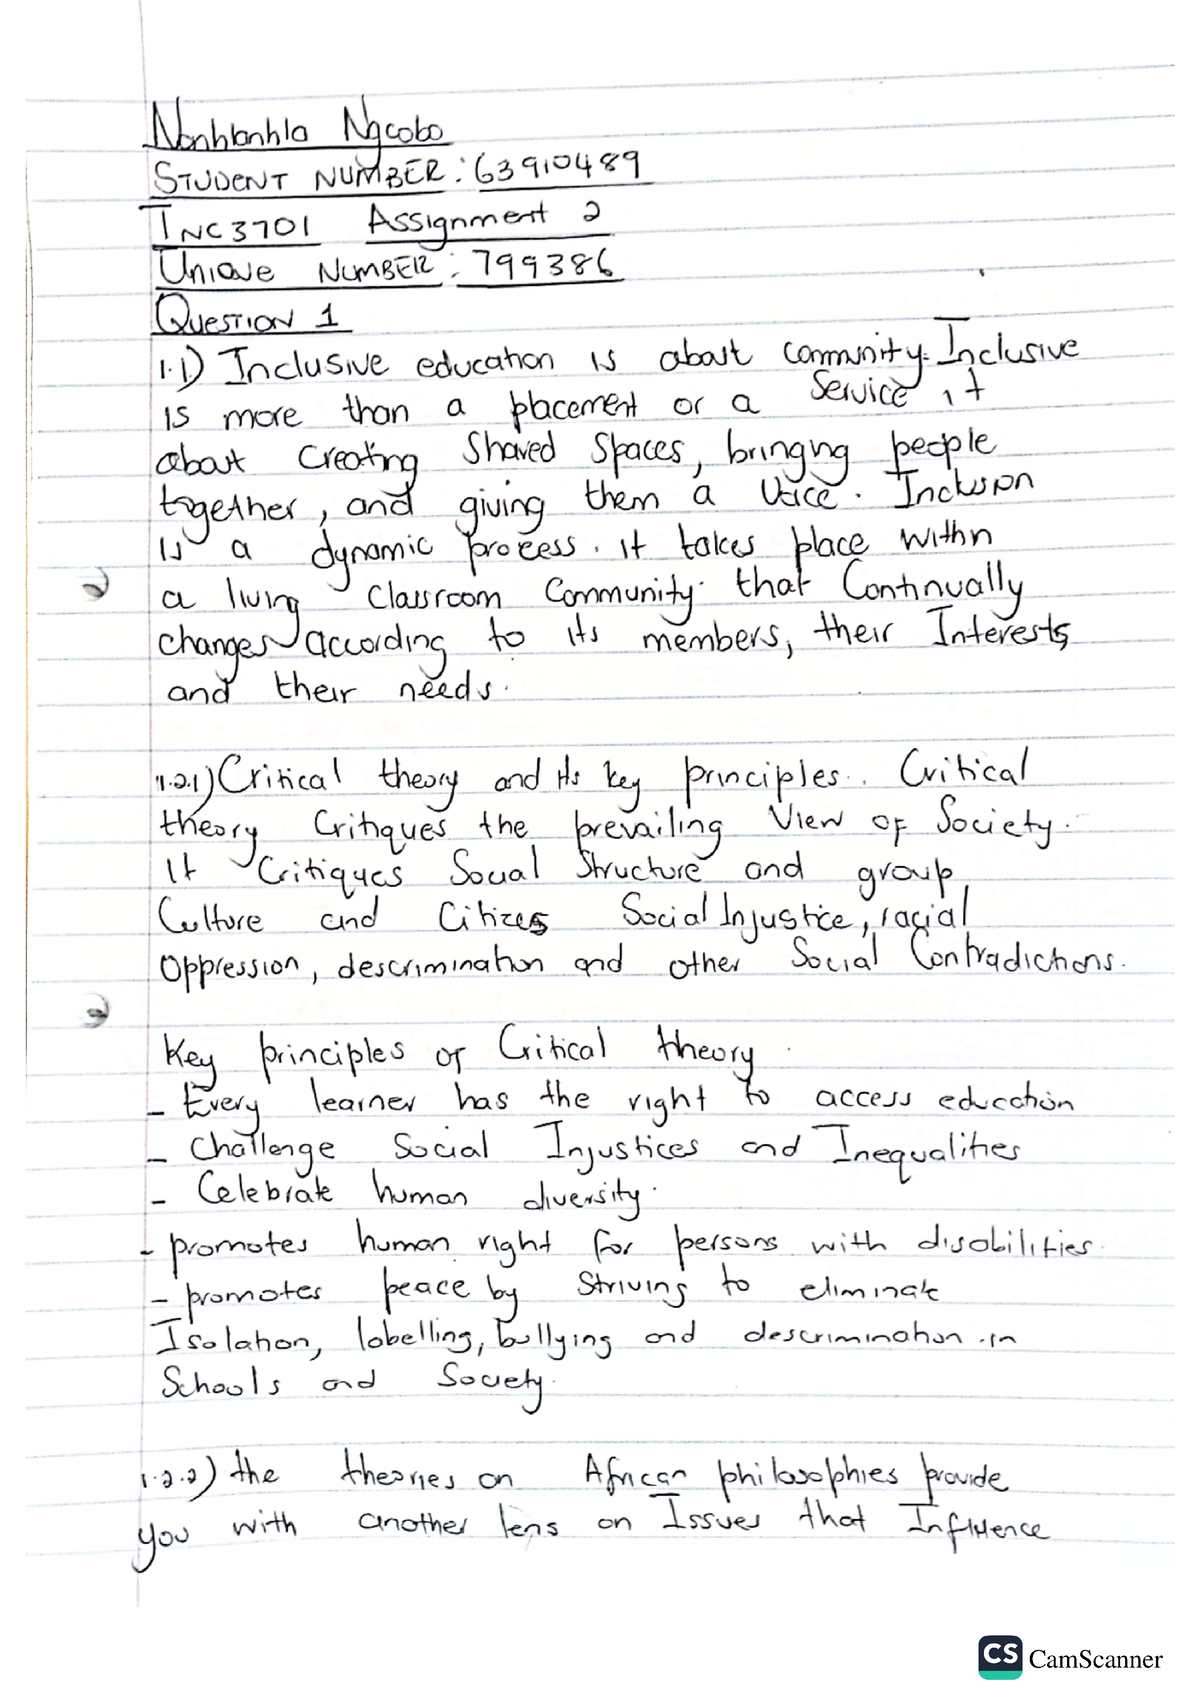 Nonhlanhla Ngcobo
STUDENT NUMBER: 63910489
INC3701 Assignment 2
UNIQUE NUMBER: 799386
QUESTION 1
1.1) Inclusive education is about community. Inclusive
is more than a placement or a service, it
about creating shared spaces, bringing people
together, and giving them a voice. Inclusion
is a dynamic process. it takes place within
a living classroom community that continually
changes according to its members, their Interests
and their needs.
1.2.1) Critical theory and its key principles. Critical
theory critiques the prevailing view of society.
It critiques social structure and group
culture and citizes social Injustice, racial
oppression, descrimination and other social contradictions.
Key principles of Critical theory.
- Every learner has the right to access education
- Challenge social Injustices and Inequalities
- Celebrate human diversity.
- promotes human right for persons with disabilities.
- promotes peace by striving to eliminate
Isolation, labelling, bullying and descrimination in
schools and society.
1.2.2) the theories on African philosophies provide
you with another lens on Issues that Influence
CS CamScanner